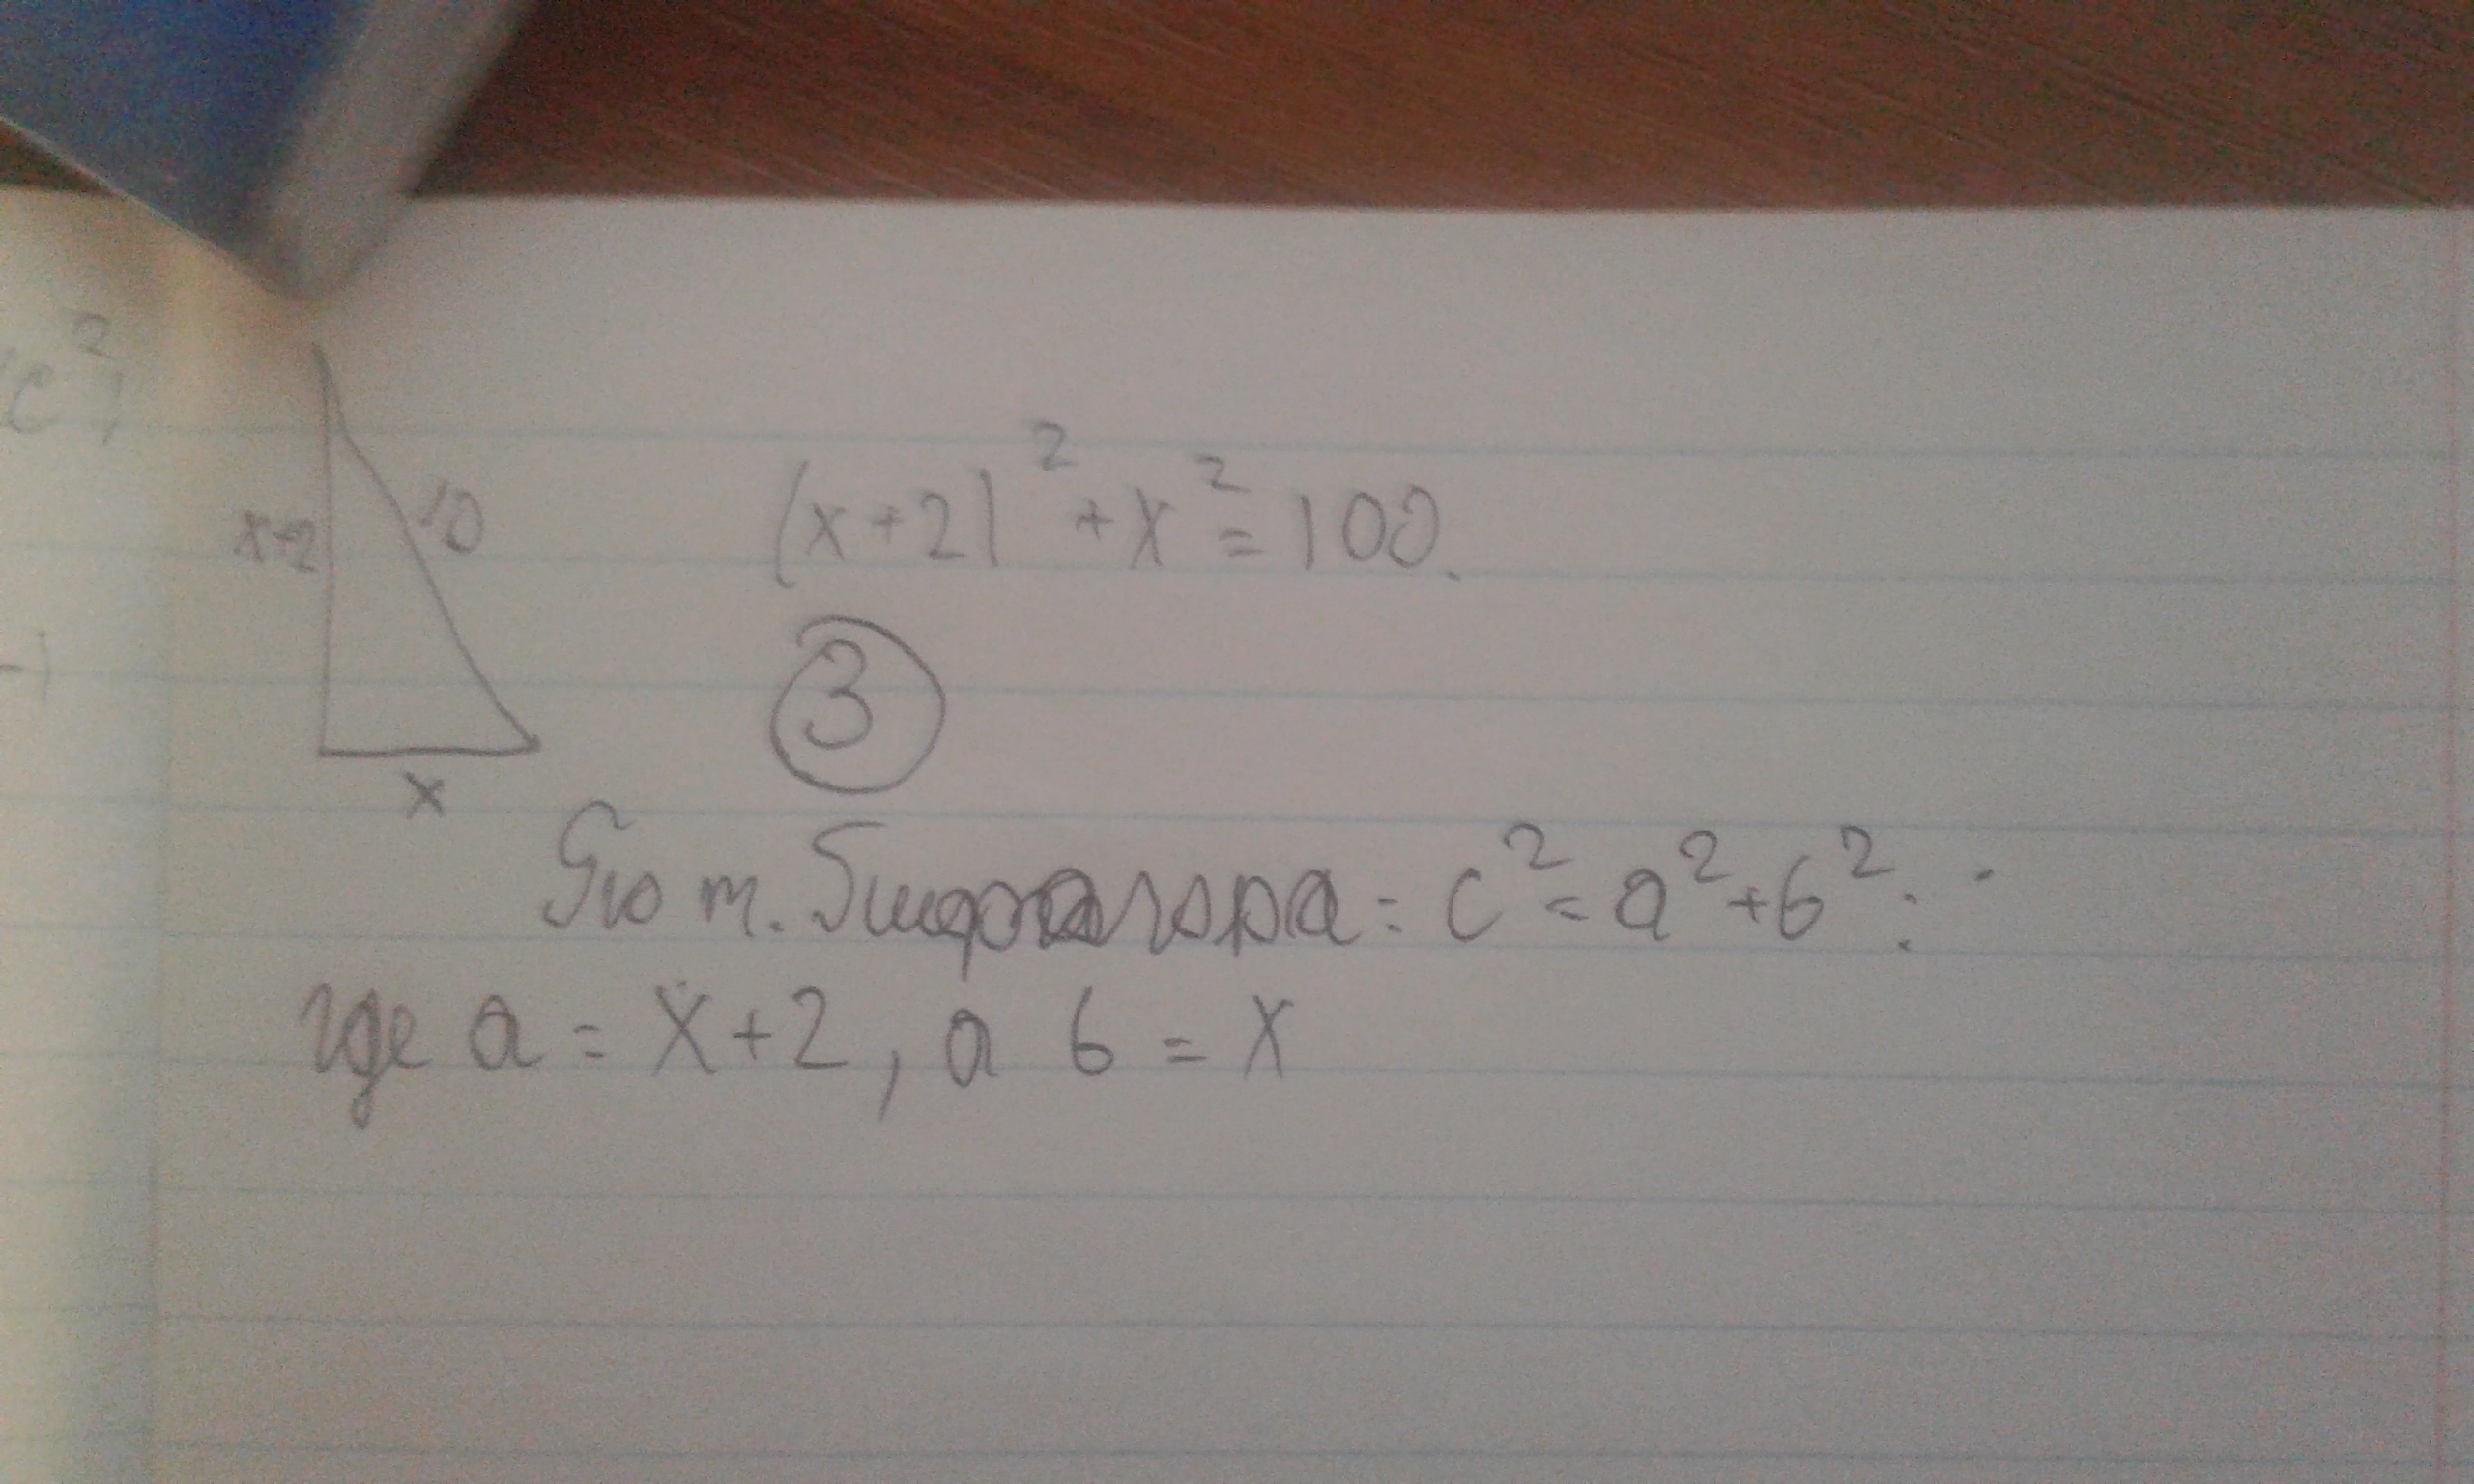 c²
x+2
10
x
(x+2)² + x² = 100.
3
По т. Пифагора: c² = a² + b² :
где a = x+2, а b = x